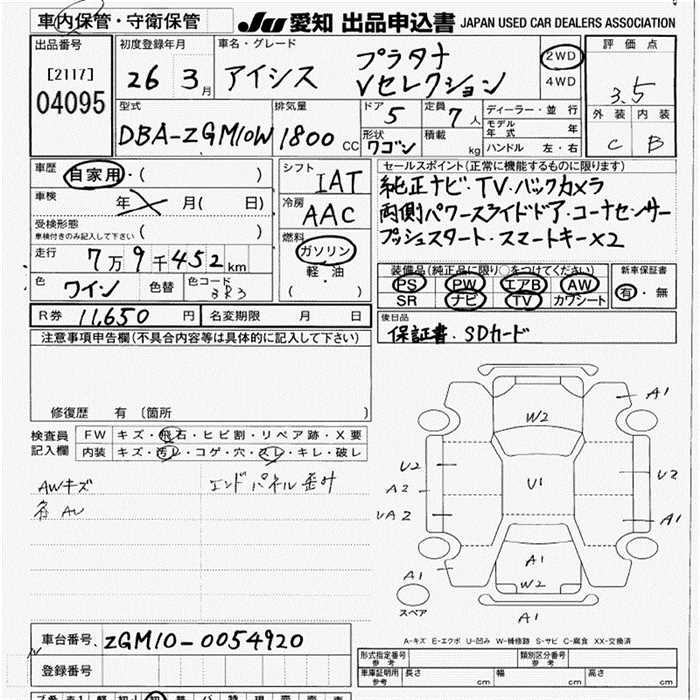 車内保管・守衛保管
JU 愛知 出品申込書 JAPAN USED CAR DEALERS ASSOCIATION
出品番号
[2117]
04095
初度登録年月
26 3月
車名・グレード
アイシス プラタナ
Vセレクション
2WD
4WD
評価点
3.5
外装 内装
C B
型式
DBA-ZGM10W
排気量
1800 CC
ドア 5
形状
ワゴン
定員 7人
積載 kg
ディーラー・並行
モデル年式 年
ハンドル 左・右
車歴 自家用・( )
車検 年 月( 日)
受検形態
車検付きのみ記入して下さい ( )
走行 7万9千452km
色 ワイン 色替 色コード 3R3
シフト
IAT
冷房
AAC
燃料
ガソリン
軽・油
( )
セールスポイント(正常に機能するものに限ります)
純正ナビ・TV・バックカメラ
両側パワースライドドア・コーナセンサー
プッシュスタート・スマートキー×2
装備品(純正品に限り○をつけてください)
PS PW エアB AW
SR ナビ TV カワシート
新車保証書
有・無
R券 11,650円 名変期限 月 日
後日品
保証書・SDカード
注意事項申告欄(不具合内容等は具体的に記入して下さい)
修復歴 有 〔箇所 〕
検査員記入欄
FW キズ・飛石・ヒビ割・リペア跡・X要
内装 キズ・汚レ・コゲ・穴・スレ・キレ・破レ
AWキズ
エンドパネル歪み
W2
A1
U2
A2
UA2
U1
U2
A1
A1
A1
W2
A1
スペア
A-キズ E-エクボ U-凹み W-補修跡 S-サビ C-腐食 XX-交換済
車台番号 ZGM10-0054920
登録番号
形式指定番号 参考
類別区分番号 参考
車庫証明用 参考 長さ cm 幅 cm 高さ cm